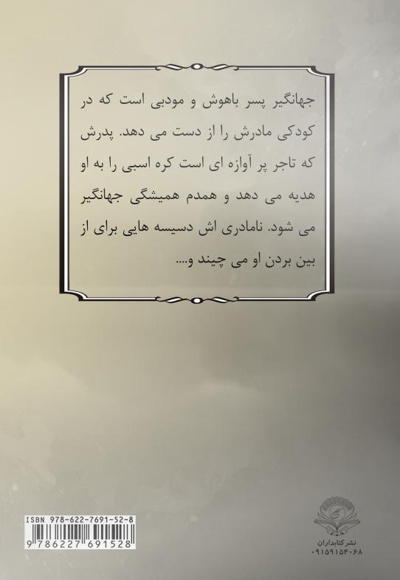 جهانگیر پسر باهوش و مودبی است که در
کودکی مادرش را از دست می دهد. پدرش
که تاجر پر آوازه ای است کره اسبی را به او
هدیه می دهد و همدم همیشگی جهانگیر
می شود. نامادری اش دسیسه هایی برای از
بین بردن او می چیند و....
ISBN 978-622-7691-52-8
9 786227 691528
نشر کتابداران
۰۹۱۵۹۱۵۴۰۶۸